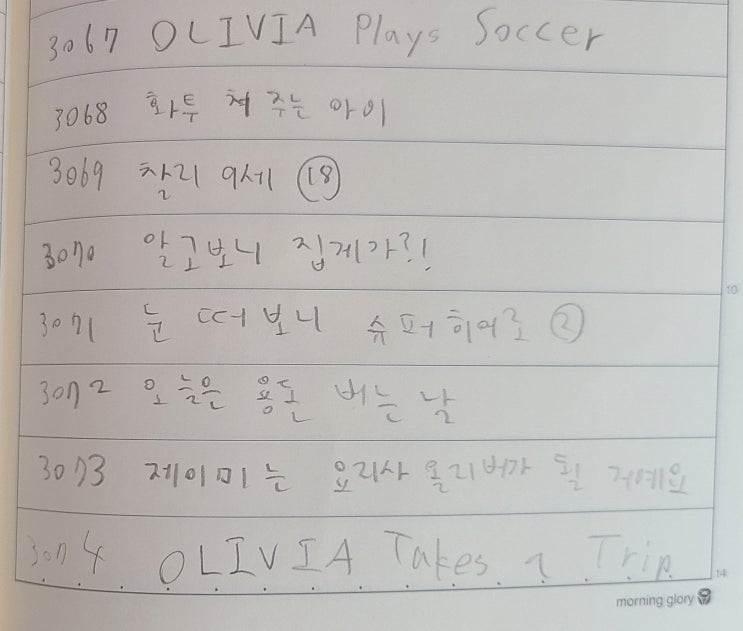 3067 OLIVIA Plays Soccer
3068 화투 쳐 주는 아이
3069 찰리 9세 18
3070 알고보니 집게가?!
10
3071 눈 떠 보니 슈퍼히어로 2
3072 오늘은 용돈 버는 날
3073 제이미는 요리사 올리버가 될 거예요
3074 OLIVIA Takes a Trip
14
morning glory